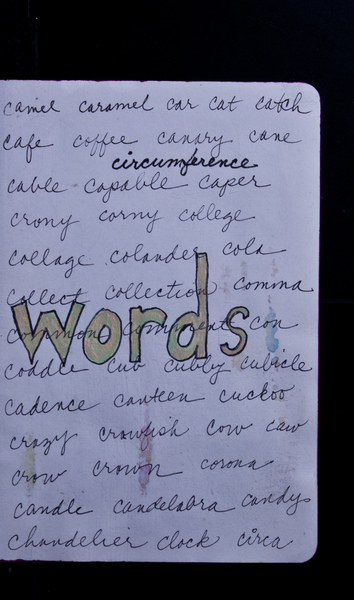 camel caramel car cat catch
cafe coffee canary cane
circumference
cable capable caper
crony corny college
collage colander cola
collect collection comma
words
common comment con
coddle cub cubby cubicle
cadence canteen cuckoo
crazy crawfish cow caw
crow crown corona
candle candelabra candys
chandelier clock circa